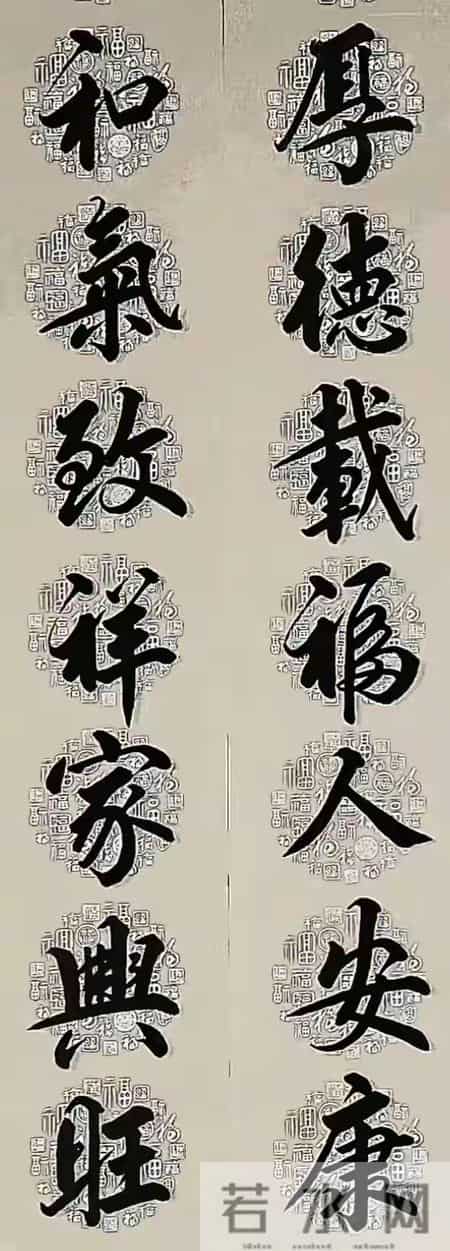 厚德載福人安康
和氣致祥家興旺
若水网